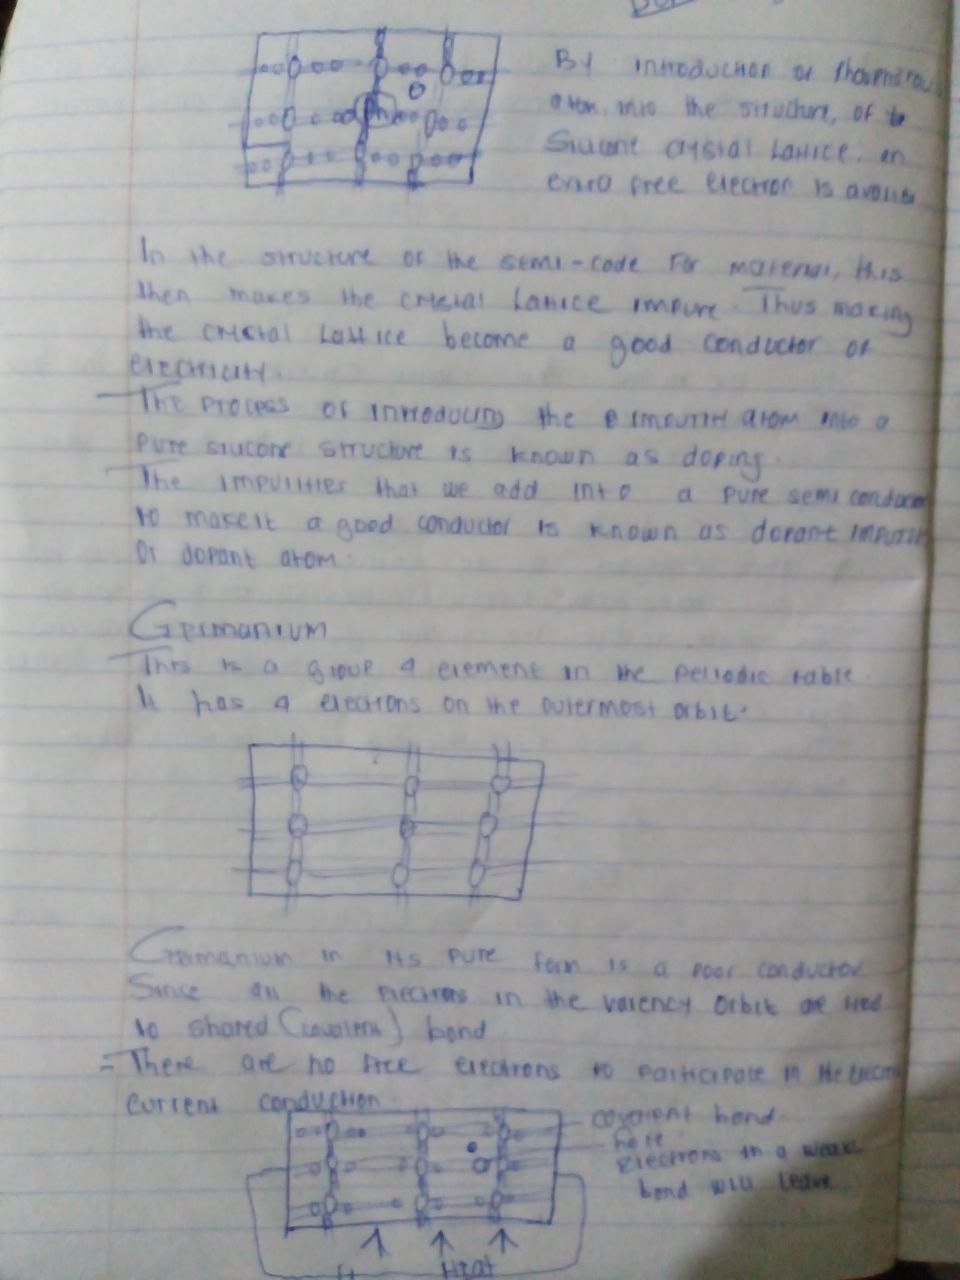 By introduction of Phosphorous
atom, into the structure, of
Silicone crystal Lattice. an
extra free electron is availa
In the structure of the semi-code For material, this
then makes the crystal Lattice impure. Thus making
the crystal Lattice become a good conductor of
electricity.
The process of introducing the impurity atom into a
pure silicone structure is known as doping.
The impurities that we add into a pure semi conduc
to make it a good conductor is known as dopant
or dopant atom.
Germanium
This is a group 4 element in the periodic table
It has 4 electrons on the outermost orbit.
Germanium in its pure form is a poor conductor
Since all the electrons in the valency orbit are tied
to shared (covalent) bond.
= There are no free electrons to participate in the
current conduction.
covalent bond.
here
Electrons in a weak
bond will leave
Heat